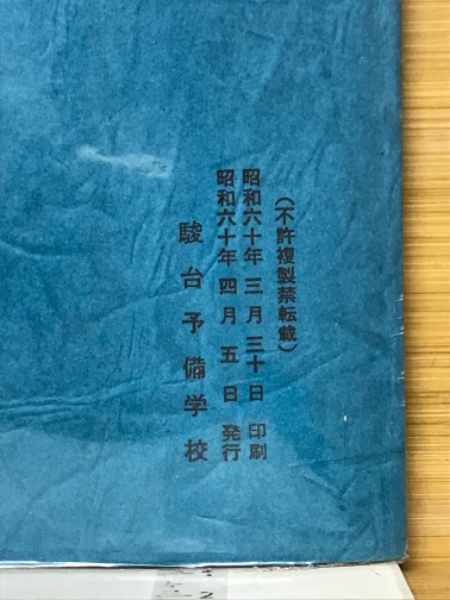 (不許複製禁転載)
昭和六十年 三月 三十日 印刷
昭和六十年 四月 五日 発行
駿台予備学校